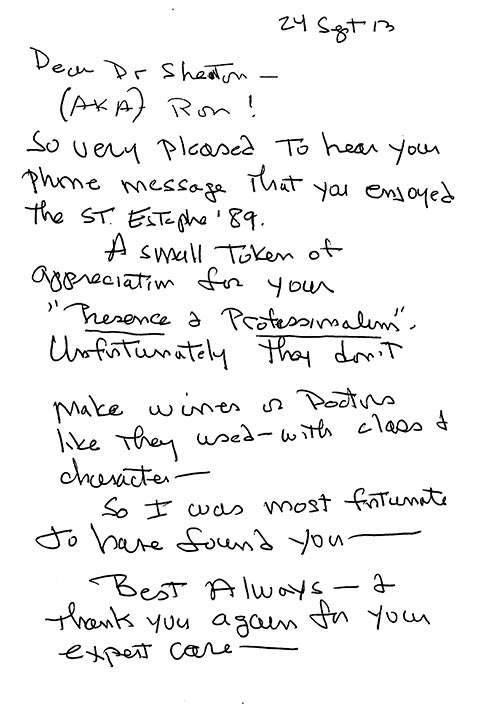 24 Sept 13
Dear Dr Shelton —
(AKA) Ron!
So very pleased to hear your
phone message that you enjoyed
the ST. Estephe '89.
A small token of
appreciation for your
"Presence & Professionalism".
Unfortunately they don't
make wines or Doctors
like they used — with class &
character —
So I was most fortunate
to have found you —
Best Always — &
thank you again for your
expert care —